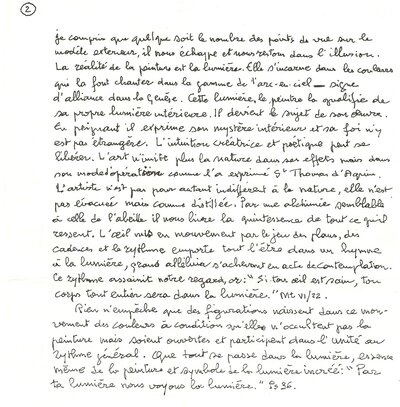 2
je compris que quelque soit le nombre des points de vue sur le
modèle exterieur, il nous échappe et nous restons dans l'illusion.
La réalité de la peinture est la lumière. Elle s'incarne dans les couleurs
qui la font chanter dans la gamme de l'arc-en-ciel — signe
d'alliance dans la Genèse. Cette lumière, le peintre la qualifie de
sa propre lumière intérieure. Il devient le sujet de son œuvre.
En peignant il exprime son mystère intérieur et sa foi n'y
est pas étrangère. L'intuition créatrice et poétique peut se
libérer. L'art n'imite plus la nature dans ses effets mais dans
son mode d'opération comme l'a exprimé St Thomas d'Aquin.
L'artiste n'est pas pour autant indifférent à la nature, elle n'est
pas évacuée mais comme distillée. Par une alchimie semblable
à celle de l'abeille il nous livre la quintessence de tout ce qu'il
ressent. L'œil mis en mouvement par le jeu des plans, des
cadences et le rythme emporte tout l'être dans un hymne
à la lumière, grand alléluia s'achevant en acte de contemplation.
Ce rythme assainit notre regard, or: "Si ton œil est sain, ton
corps tout entier sera dans la lumière." Mt VI/22.
Rien n'empêche que des figurations naissent dans ce mou-
vement des couleurs à condition qu'elles n'occultent pas la
peinture mais soient ouvertes et participent dans l'unité au
rythme général. Que tout se passe dans la lumière, essence
même de la peinture et symbole de la lumière incréée: "Par
ta lumière nous voyons la lumière." Ps 36.